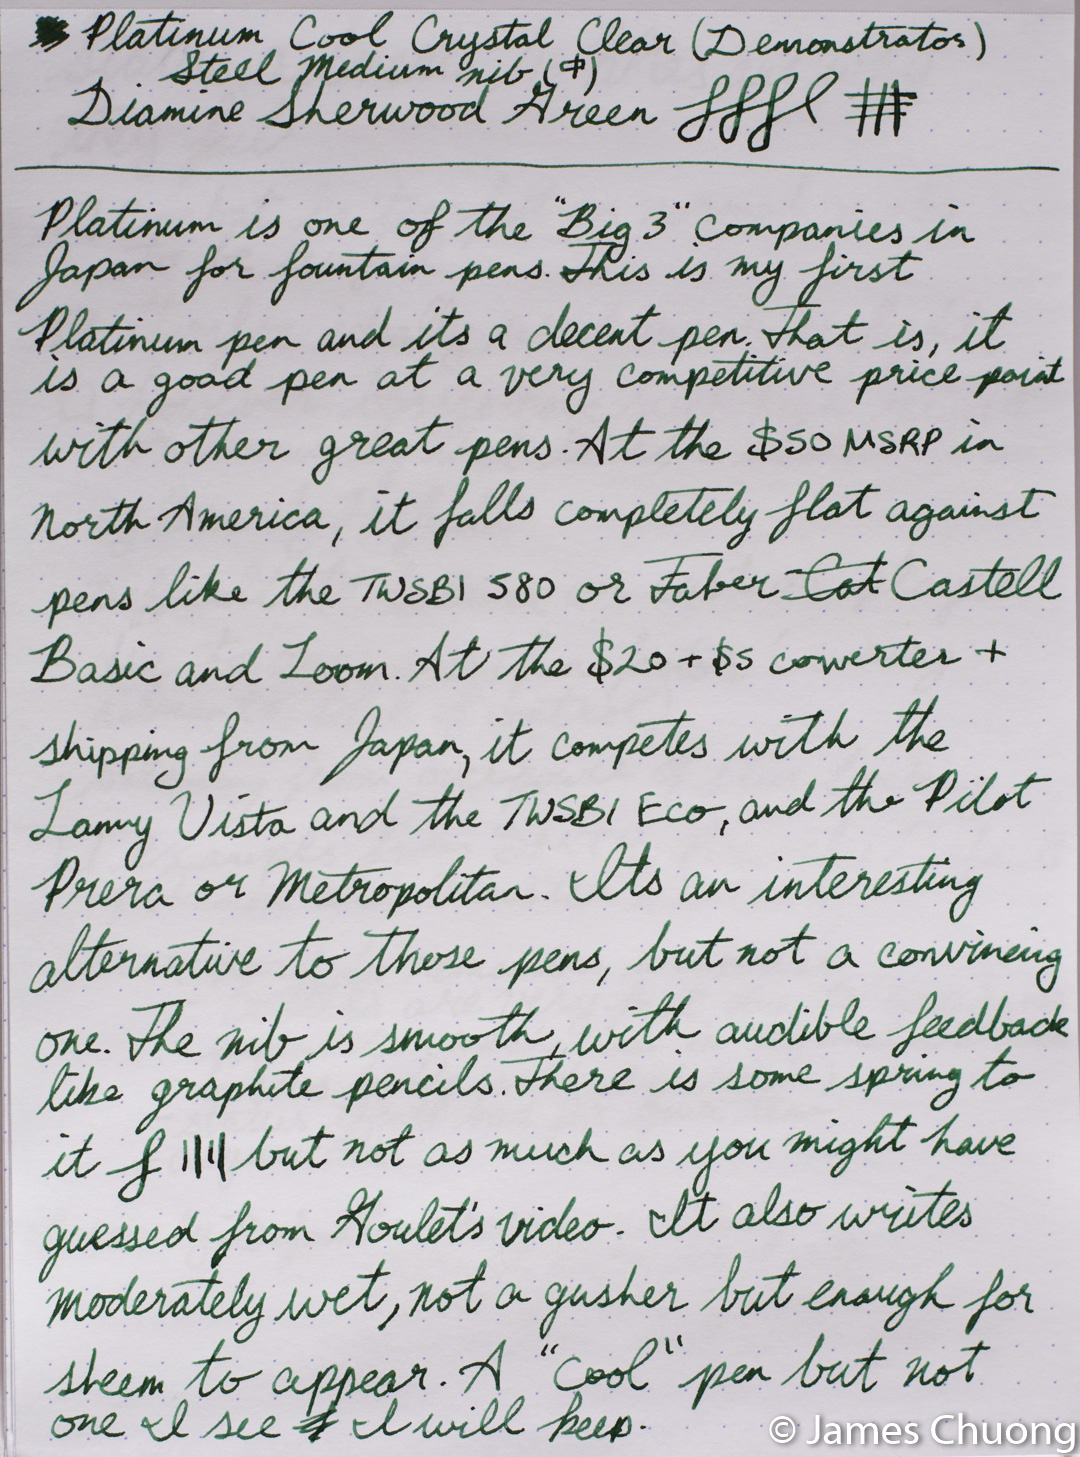 Platinum Cool Crystal Clear (Demonstrator)
Steel Medium nib
Diamine Sherwood Green
Platinum is one of the "Big 3" companies in
Japan for fountain pens. This is my first
Platinum pen and its a decent pen. That is, it
is a good pen at a very competitive price point
with other great pens. At the $50 MSRP in
North America, it falls completely flat against
pens like the TWSBI 580 or Faber Cat Castell
Basic and Loom. At the $20 + $5 converter +
shipping from Japan, it competes with the
Lamy Vista and the TWSBI Eco, and the Pilot
Prera or Metropolitan. Its an interesting
alternative to those pens, but not a convincing
one. The nib is smooth, with audible feedback
like graphite pencils. There is some spring to
it but not as much as you might have
guessed from Goulet's video. It also writes
moderately wet, not a gusher but enough for
sheem to appear. A "Cool" pen but not
one I see I will keep.
© James Chuong